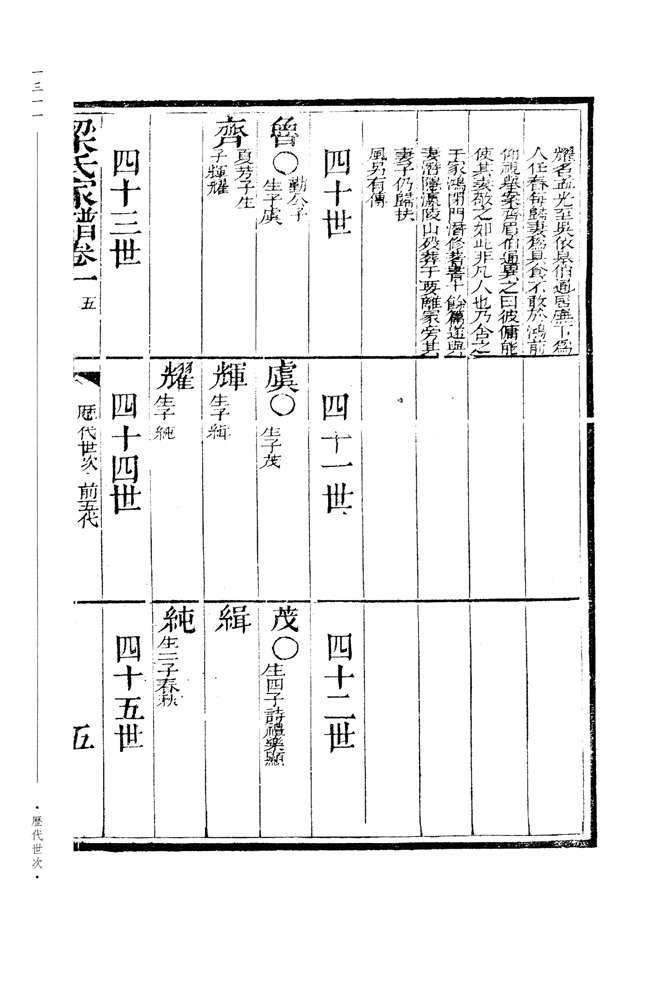 耀名孟光至吳依皋伯通居廡下為
人任舂每歸妻為具食不敢於鴻前
仰視舉案齊眉伯通異之曰彼傭能
使其妻敬之如此非凡人也乃舍之
于家鴻閉門潛修著書十餘篇遂與
妻潛隱瀛陵山歿葬于要離家旁其
妻子仍歸扶
風另有傳
四十世
魯○勤公子
生子虞
齊真芳子生
子輝耀
四十三世
四十一世
虞○生子茂
輝生子緝
耀生子純
四十四世
四十二世
茂○生四子詩禮樂顯
緝
純生二子春秋
四十五世
梁氏家譜卷一 五
歷代世次 前五代
五
一三一一
·歷代世次·